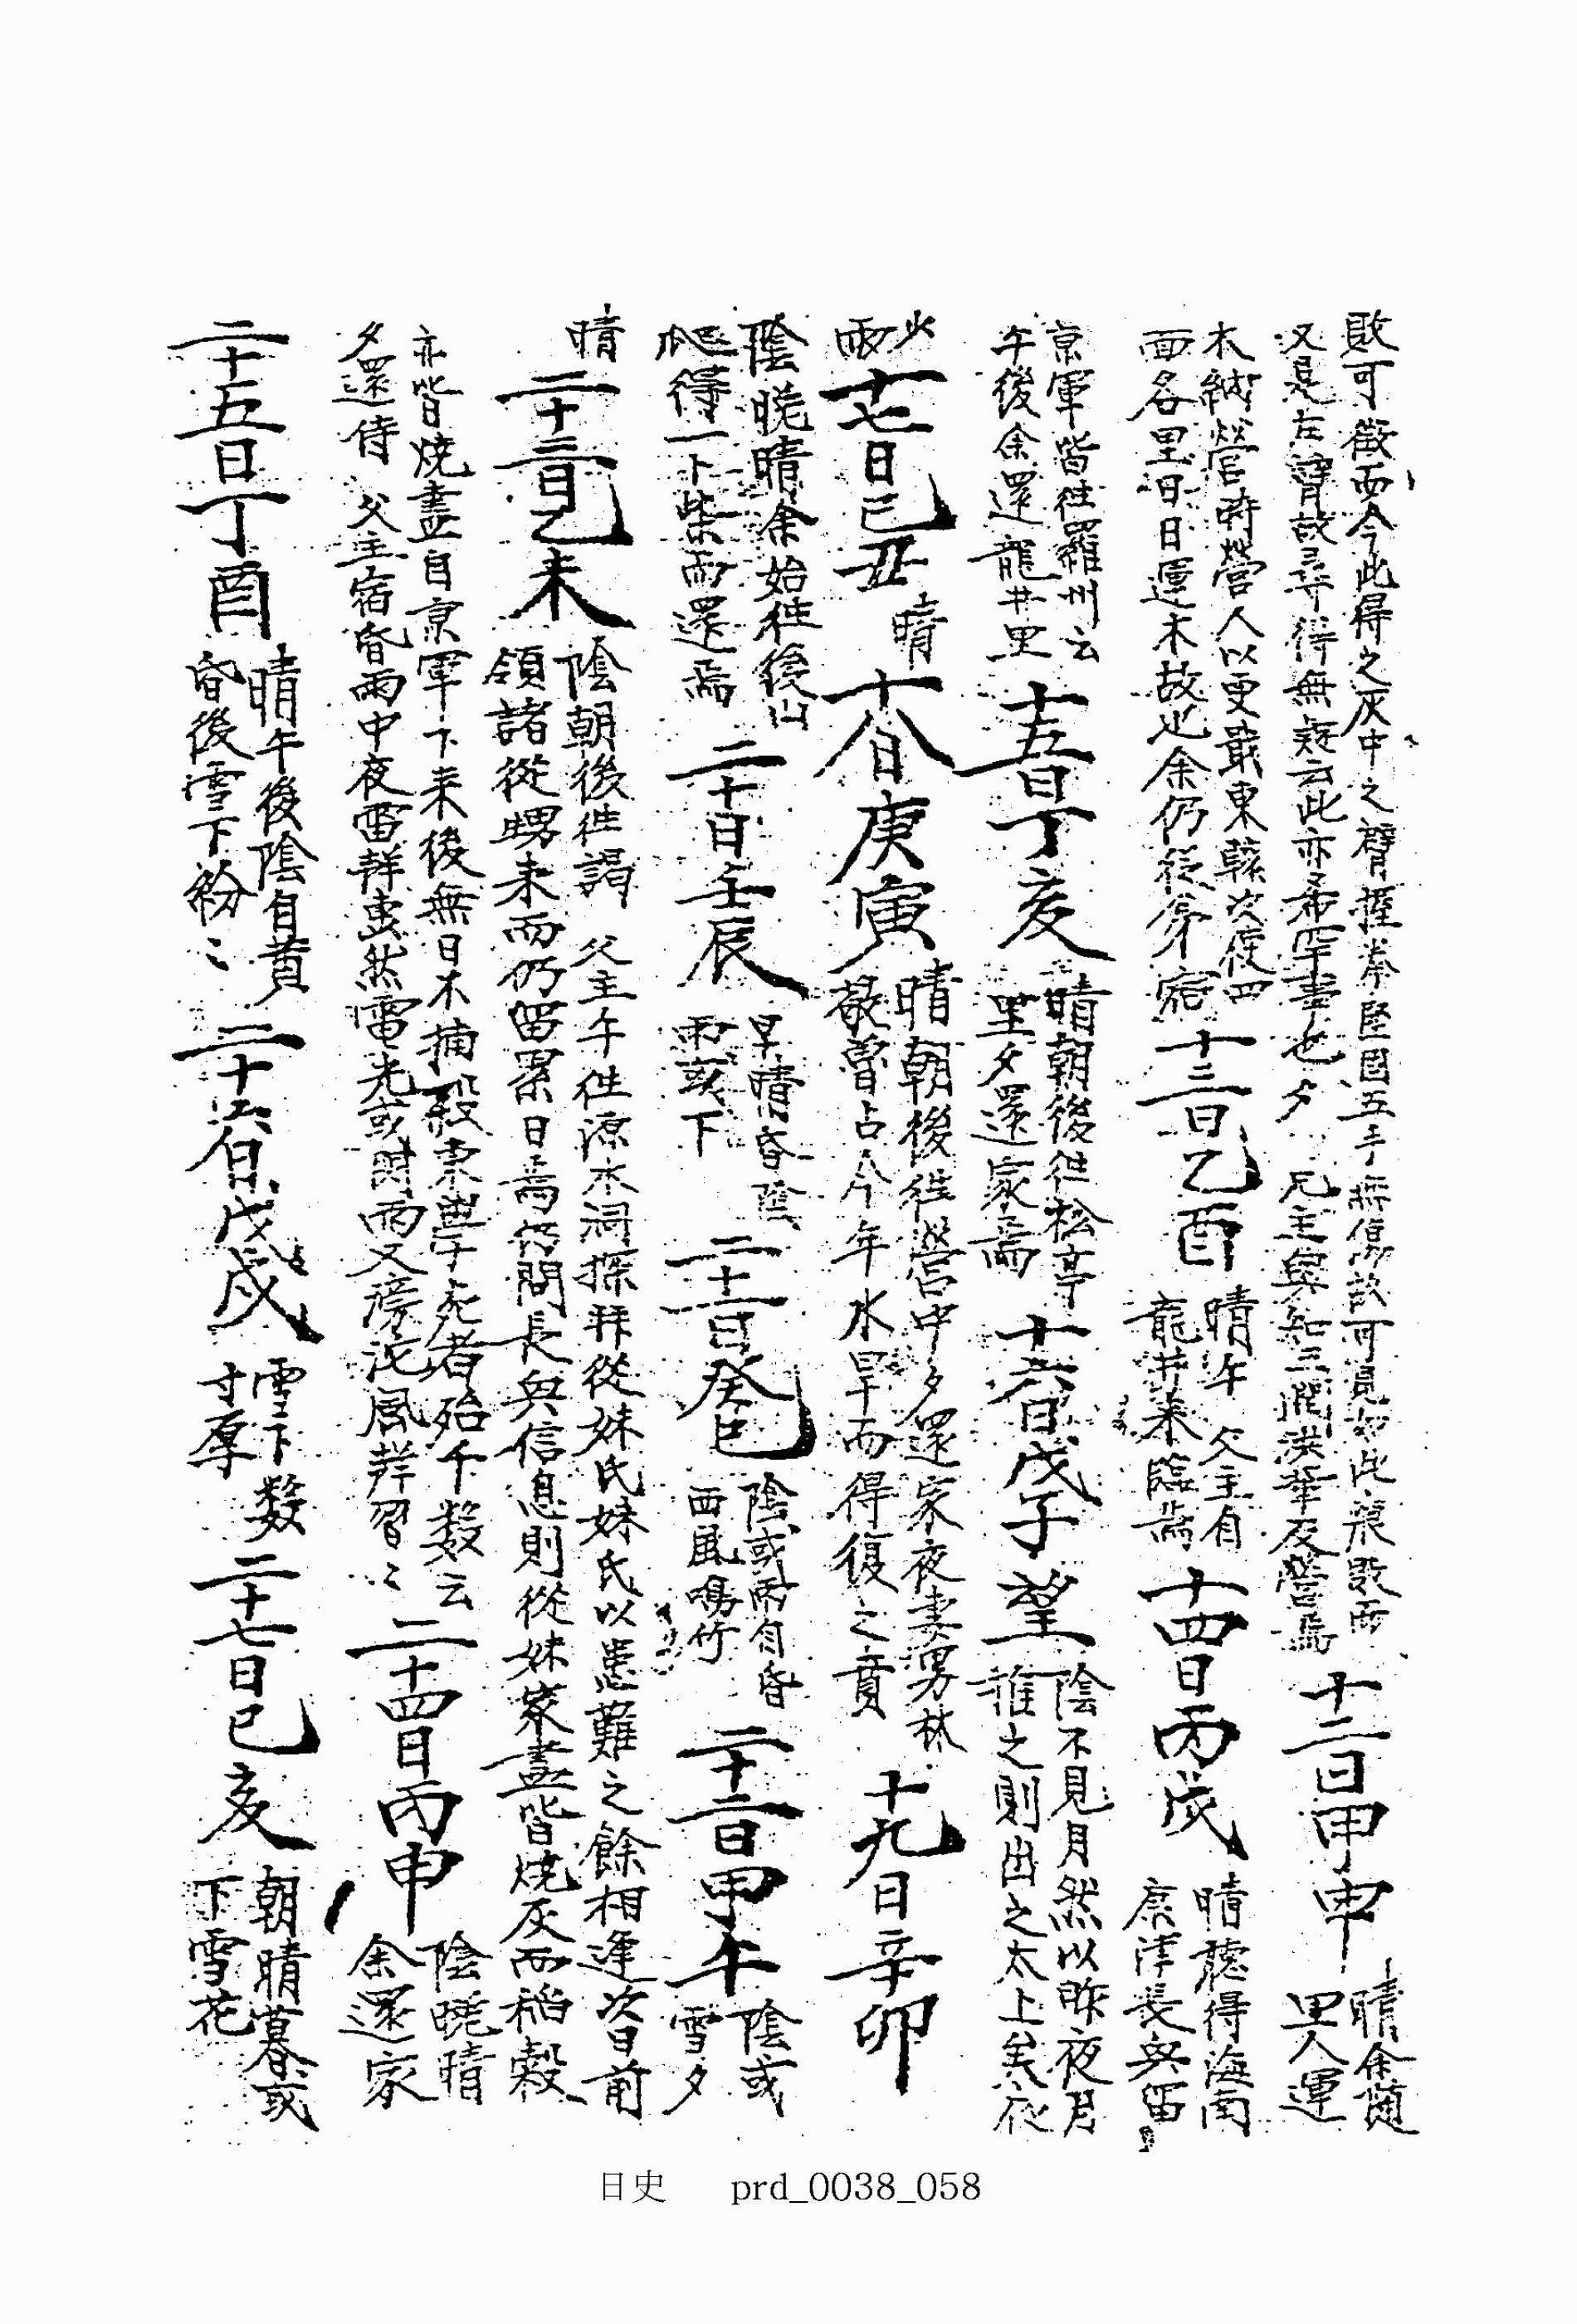 敗可徵而今此得之灰中之臂握拳堅固五手無傷故可見如此狼敗而
又是左臂故尋得無疑云此亦希罕事也夕 兄主與知三閏洪華及營焉
十二日甲申
晴余隨
里人運
木納營時營人以更嚴東縣次使四
面各里日日運木故也余仍從弟宿
十三日乙酉
晴午 父主自
龍井來臨焉
十四日丙戌
晴聽得海南
康津長興留
京軍皆往羅州云
午後余還龍井里
十五日丁亥
晴朝後往松亭
里夕還家焉
十六日戊子望
陰不見月然以昨夜月
推之則出之太上矣夜
少
雨
十七日己丑
晴
十八日庚寅
晴朝後往營中夕還家夜妻男林
敬魯占今年水旱而得復之賁
十九日辛卯
陰晩晴余始往後山
爬得一卜柴而還焉
二十日壬辰
早晴昏陰
雨或下
二十一日癸巳
陰或雨自昏
西風鳴竹
二十二日甲午
陰或
雪夕
晴
二十三日乙未
陰朝後往謁 父主午往源水洞探拜從妹氏妹氏以患難之餘相逢次昔前
領諸從甥來而仍留累日焉仍問長興信息則從妹家盡皆燒灰而稻穀
亦皆燒盡自京軍下來後無日不捕殺東學于死者殆千數云
夕還侍 父主宿昏雨中夜雷鞳轟然電光或閃雨又滂沱風鞳習ミ
二十四日丙申
陰晩晴
余還家
二十五日丁酉
晴午後陰自黃
昏後雪下紛ミ
二十六日戊戌
雪下數
寸厚
二十七日己亥
朝晴暮或
下雪花
日史 prd_0038_058